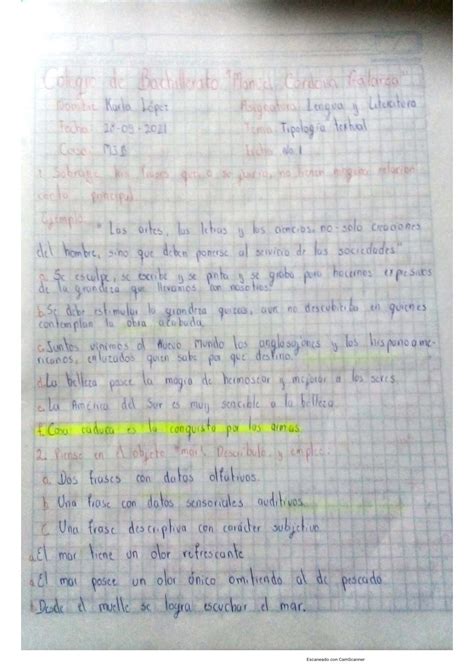 Colegio de Bachillerato "Manuel Córdova Galarza"
Nombre: Karla López Asignatura: Lengua y Literatura
Fecha: 28-09-2021 Tema: Tipología textual
Curso: M3B No 1
1. Subraye las frases que a su juicio, no tienen ninguna relación
texto principal
Ejemplo:
"Las artes, las letras y las ciencias, no solo creaciones
del hombre, sino que deben ponerse al servicio de las sociedades"
a. Se esculpe, se escribe y se pinta y se graba para hacernos
de la grandeza que llevamos, en nosotros.
b. Se debe estimular la grandeza quizas, aun no descubierta en quienes
contemplan la obra acabada.
c. Juntos vinimos al Nuevo Mundo los anglosajones y los hispanoame-
ricanos, enlazados quien sabe por que destino.
d. La belleza posee la magia de hermosear y mejorar a los seres.
e. La América del Sur es muy sencible a la belleza.
f. Cosa caduca es la conquista por las armas.
2. Piense en 1 objeto "mar". Describalo, y emplee:
a. Dos frases con datos olfativos.
b. Una frase con datos sensoriales auditivos.
c. Una frase descriptiva con carácter subjetivo.
a. El mar tiene un olor refrescante
a. El mar posee un olor único omitiendo al de pescado
b. Desde el muelle se logra escuchar el mar.
Escaneado con CamScanner